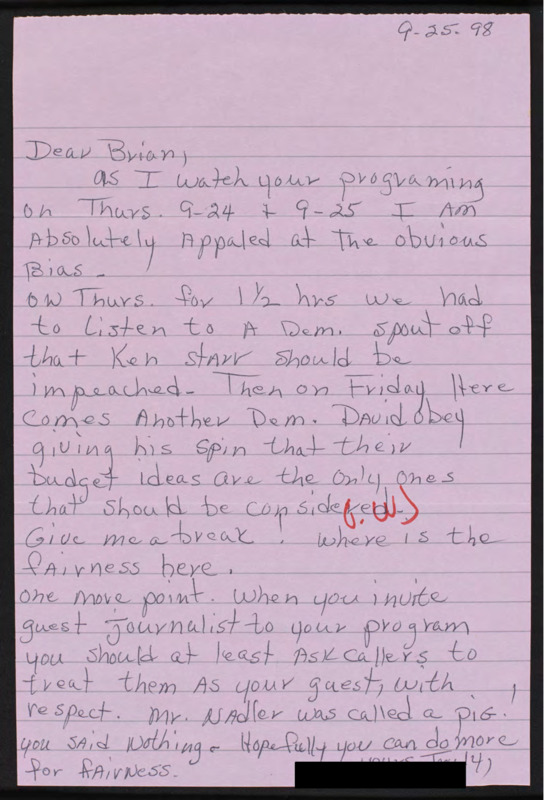 9-25-98
Dear Brian,
as I watch your programing
on Thurs. 9-24 + 9-25 I Am
Absolutely Appaled at The obvious
Bias -
on Thurs. for 1½ hrs we had
to Listen to A Dem. spout off
that Ken starr should be
impeached - Then on Friday Here
Comes Another Dem. David Obey
giving his spin that their
budget ideas are the only ones
that should be considered.
Give me a break! Where is the
fairness here.
One more point. When you invite
guest journalist to your program
you should at least Ask callers to
treat them As your guest, with
respect. Mr. Nadler was called a pig!
you said Nothing - Hopefully you can do more
for fairness.